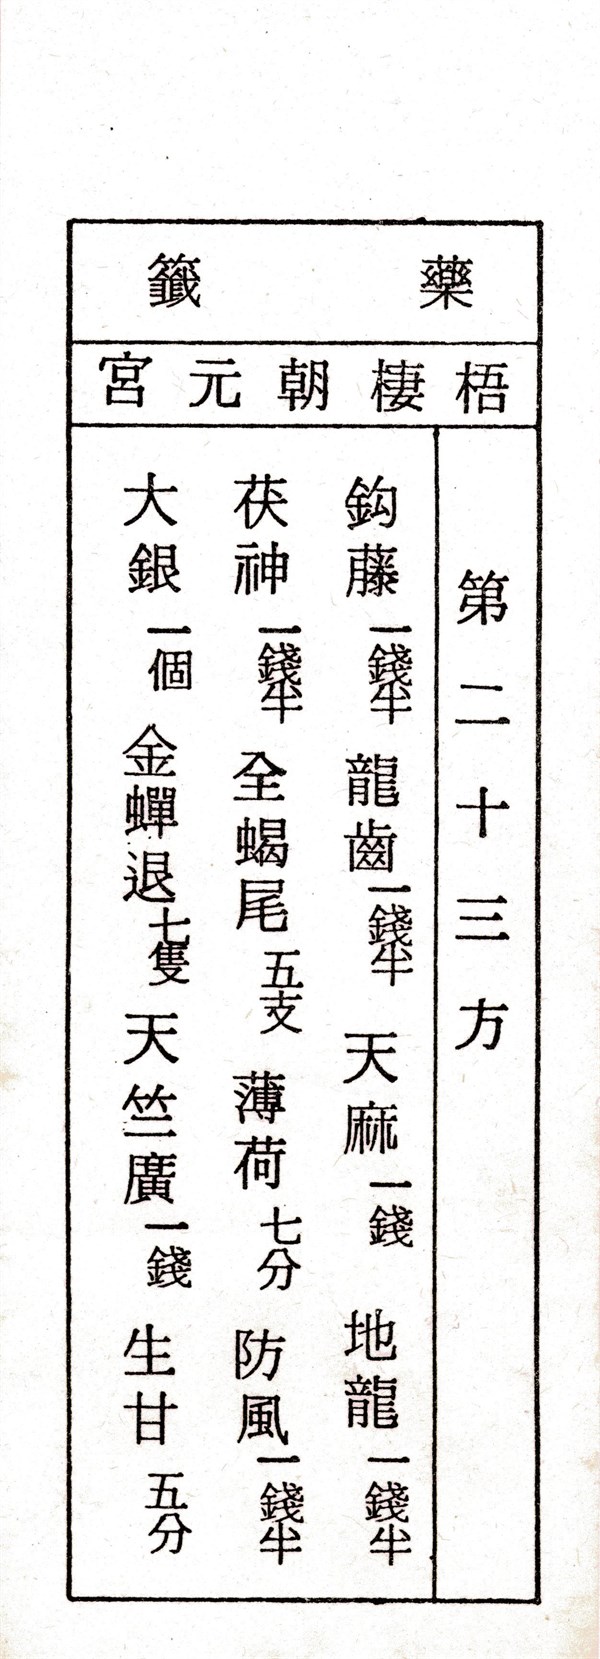 藥籤
梧棲朝元宮
第二十三方
鈎藤一錢半 龍齒一錢半 天麻一錢 地龍一錢半
茯神一錢半 全蝎尾五支 薄荷七分 防風一錢半
大銀一個 金蟬退七隻 天竺廣一錢 生甘五分